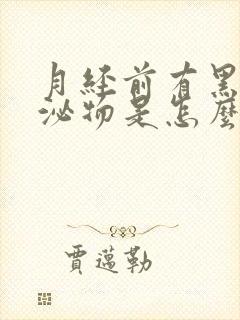 月经前有黑
泌物是怎麼
賈邁勒